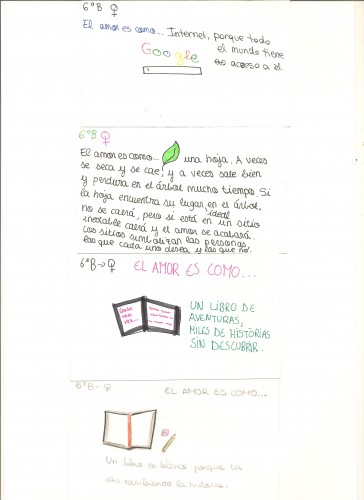 6º B ♀
El amor es como... Internet, porque todo
el mundo tiene
acceso a él.
Google
6ºB ♀
El amor es como... una hoja. A veces
se seca y se cae, y a veces sale bien
y perdura en el árbol mucho tiempo. Si
la hoja encuentra su lugar en el árbol,
no se caerá, pero si está en un sitio ideal
inestable caerá y el amor se acabará.
Los sitios simbolizan las personas,
las que cada uno desea y las que no.
6ºB→♀ EL AMOR ES COMO...
Érase
una
vez...
UN LIBRO DE
AVENTURAS,
MILES DE HISTORIAS
SIN DESCUBRIR.
6ºB - ♀ EL AMOR ES COMO...
Un libro en blanco porque tú
vas escribiendo la historia.